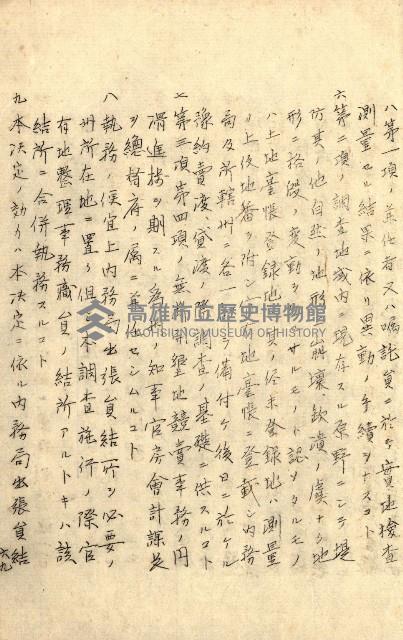 八第一項ノ
測量セル結果ニ依リ異動ノ手續ヲナスコト
六第二項ノ調査地域内ニ現存スル原野ニシテ堤
防其ノ他自然ノ地形崩壞欽潰ノ虞ナク地
形ニ格段ノ變動ヲ サルモノト認メタルモノ
ハ土地臺帳登錄地 ノ 未登錄地ハ測量
ノ上後地番ヲ附シ 地臺帳ニ登載シ内務
局及所轄州ニ各一 備付ケ後日ニ於ケル
豫約賣渡貸渡ノ 調査ノ基礎ニ供スルコト
七第三項第四項ノ無 地競賣事務ノ円
滑進捗ヲ期スル爲 知事官房會計課
ヲ總督府ノ屬ニ セシムルコト
八執務ノ便宜上内務局出張員結所ヲ必要ノ
州所在地ニ置ク但シ本調査施行ノ際官
有地整理事務職員ノ結所アルトキハ該
結所ニ合併執務スルコト
九本決定ノ効力ハ本決定ニ依ル内務局出張員結
六九
高雄市立歷史博物館
KAOHSIUNG MUSEUM OF HISTORY